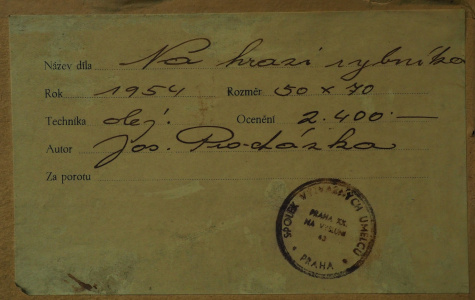 Název díla Na hrázi rybníka
Rok 1954 Rozměr 50 x 70
Technika olej. Ocenění 2.400.—
Autor Jos. Procházka
Za porotu
SPOLEK VÝTVARNÝCH UMĚLCŮ
PRAHA XX.
NA VÝSLUNÍ
* PRAHA *